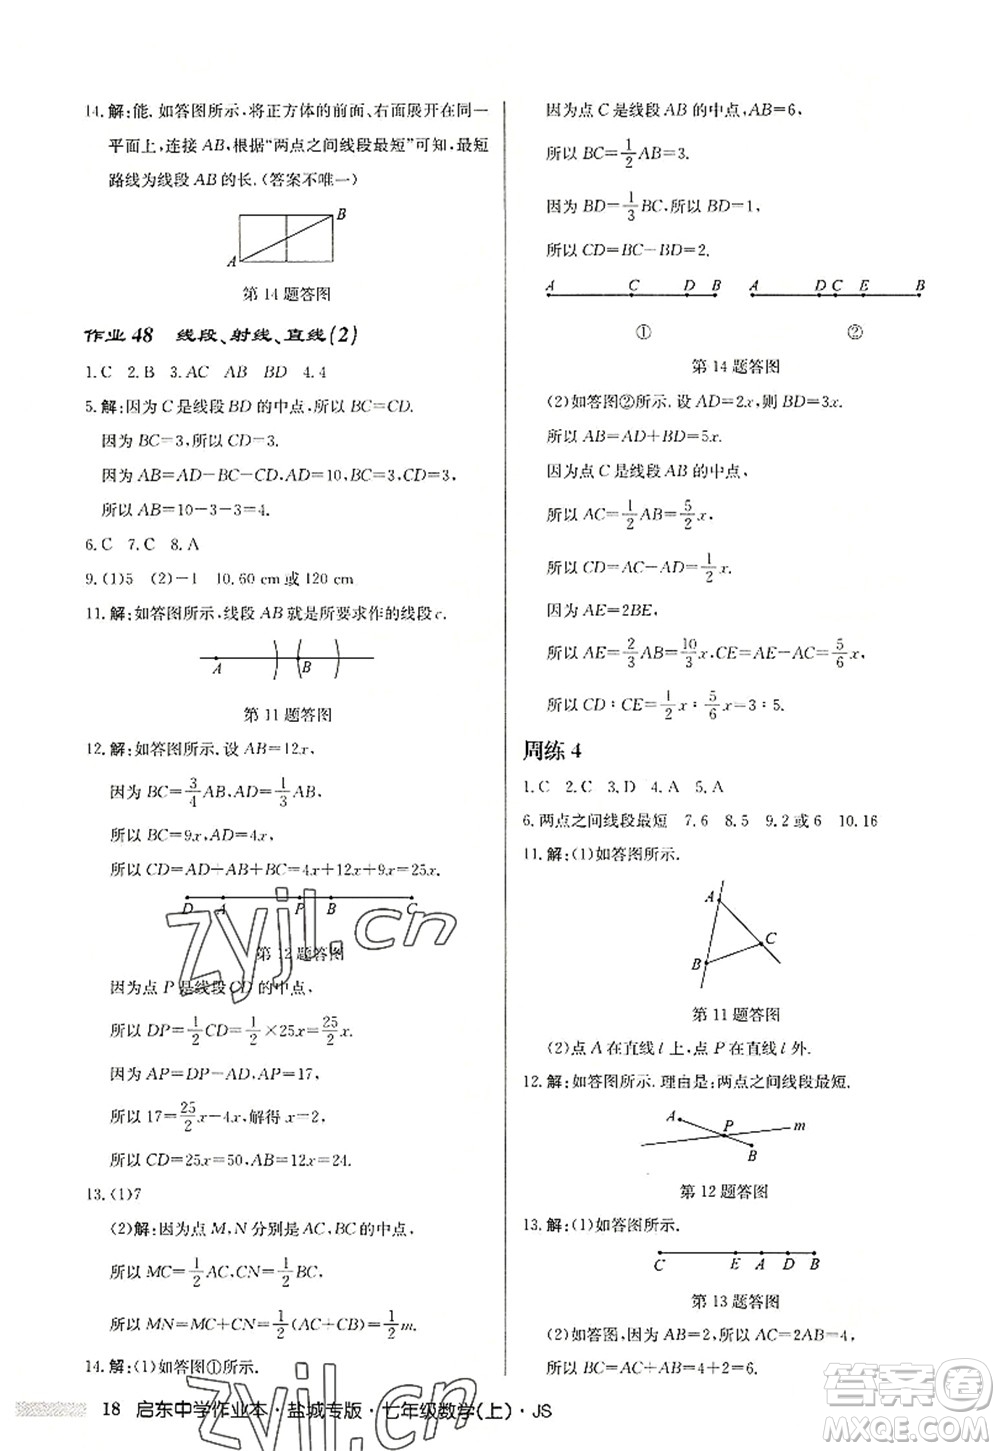 14.解:能.如答图所示,将正方体的前面、右面展开在同一
平面上,连接 AB,根据“两点之间线段最短”可知,最短
路线为线段 AB 的长.(答案不唯一)
A
B
第14题答图
作业48 线段、射线、直线(2)
1.C 2.B 3.AC AB BD 4.4
5.解:因为 C 是线段 BD 的中点,所以 BC=CD.
因为 BC=3,所以 CD=3.
因为 AB=AD-BC-CD,AD=10,BC=CD=3,
所以 AB=10-3-3=4.
6.C 7.C 8.A
9.(1)5 (2)-1 10.60 cm 或 120 cm
11.解:如答图所示,线段 AB 就是所要求作的线段 c.
A B
第11题答图
12.解:如答图所示.设 AB=12x,
因为 BC=3/4 AB,AD=1/3 AB,
所以 BC=9x,AD=4x,
所以 CD=AD+AB+BC=4x+12x+9x=25x.
D A P B C
第12题答图
因为点 P 是线段 CD 的中点,
所以 DP=1/2 CD=1/2×25x=25/2 x.
因为 AP=DP-AD,AP=17,
所以 17=25/2 x-4x,解得 x=2,
所以 CD=25x=50,AB=12x=24.
13.(1)7
(2)解:因为点 M,N 分别是 AC,BC 的中点,
所以 MC=1/2 AC,CN=1/2 BC,
所以 MN=MC+CN=1/2(AC+CB)=1/2 m.
14.解:(1)如答图①所示.
因为点 C 是线段 AB 的中点,AB=6,
所以 BC=1/2 AB=3.
因为 BD=1/3 BC,所以 BD=1,
所以 CD=BC-BD=2.
A C D B A D C E B
① ②
第14题答图
(2)如答图②所示.设 AD=2x,则 BD=3x.
所以 AB=AD+BD=5x.
因为点 C 是线段 AB 的中点,
所以 AC=1/2 AB=5/2 x,
所以 CD=AC-AD=1/2 x.
因为 AE=2BE,
所以 AE=2/3 AB=10/3 x,CE=AE-AC=5/6 x,
所以 CD∶CE=1/2 x∶5/6 x=3∶5.
周练4
1.C 2.C 3.D 4.A 5.A
6.两点之间线段最短 7.6 8.5 9.2或6 10.16
11.解:(1)如答图所示.
A
C
B
第11题答图
(2)点 A 在直线 l 上,点 P 在直线 l 外.
12.解:如答图所示.理由是:两点之间线段最短.
A
P m
B
第12题答图
13.解:(1)如答图所示.
C E A D B
第13题答图
(2)如答图,因为 AB=2,所以 AC=2AB=4,
所以 BC=AC+AB=4+2=6.
18 启东中学作业本·盐城专版·七年级数学(上)·JS
zyjl.cn
zyjl.cn
答案圈
MXQE.COM